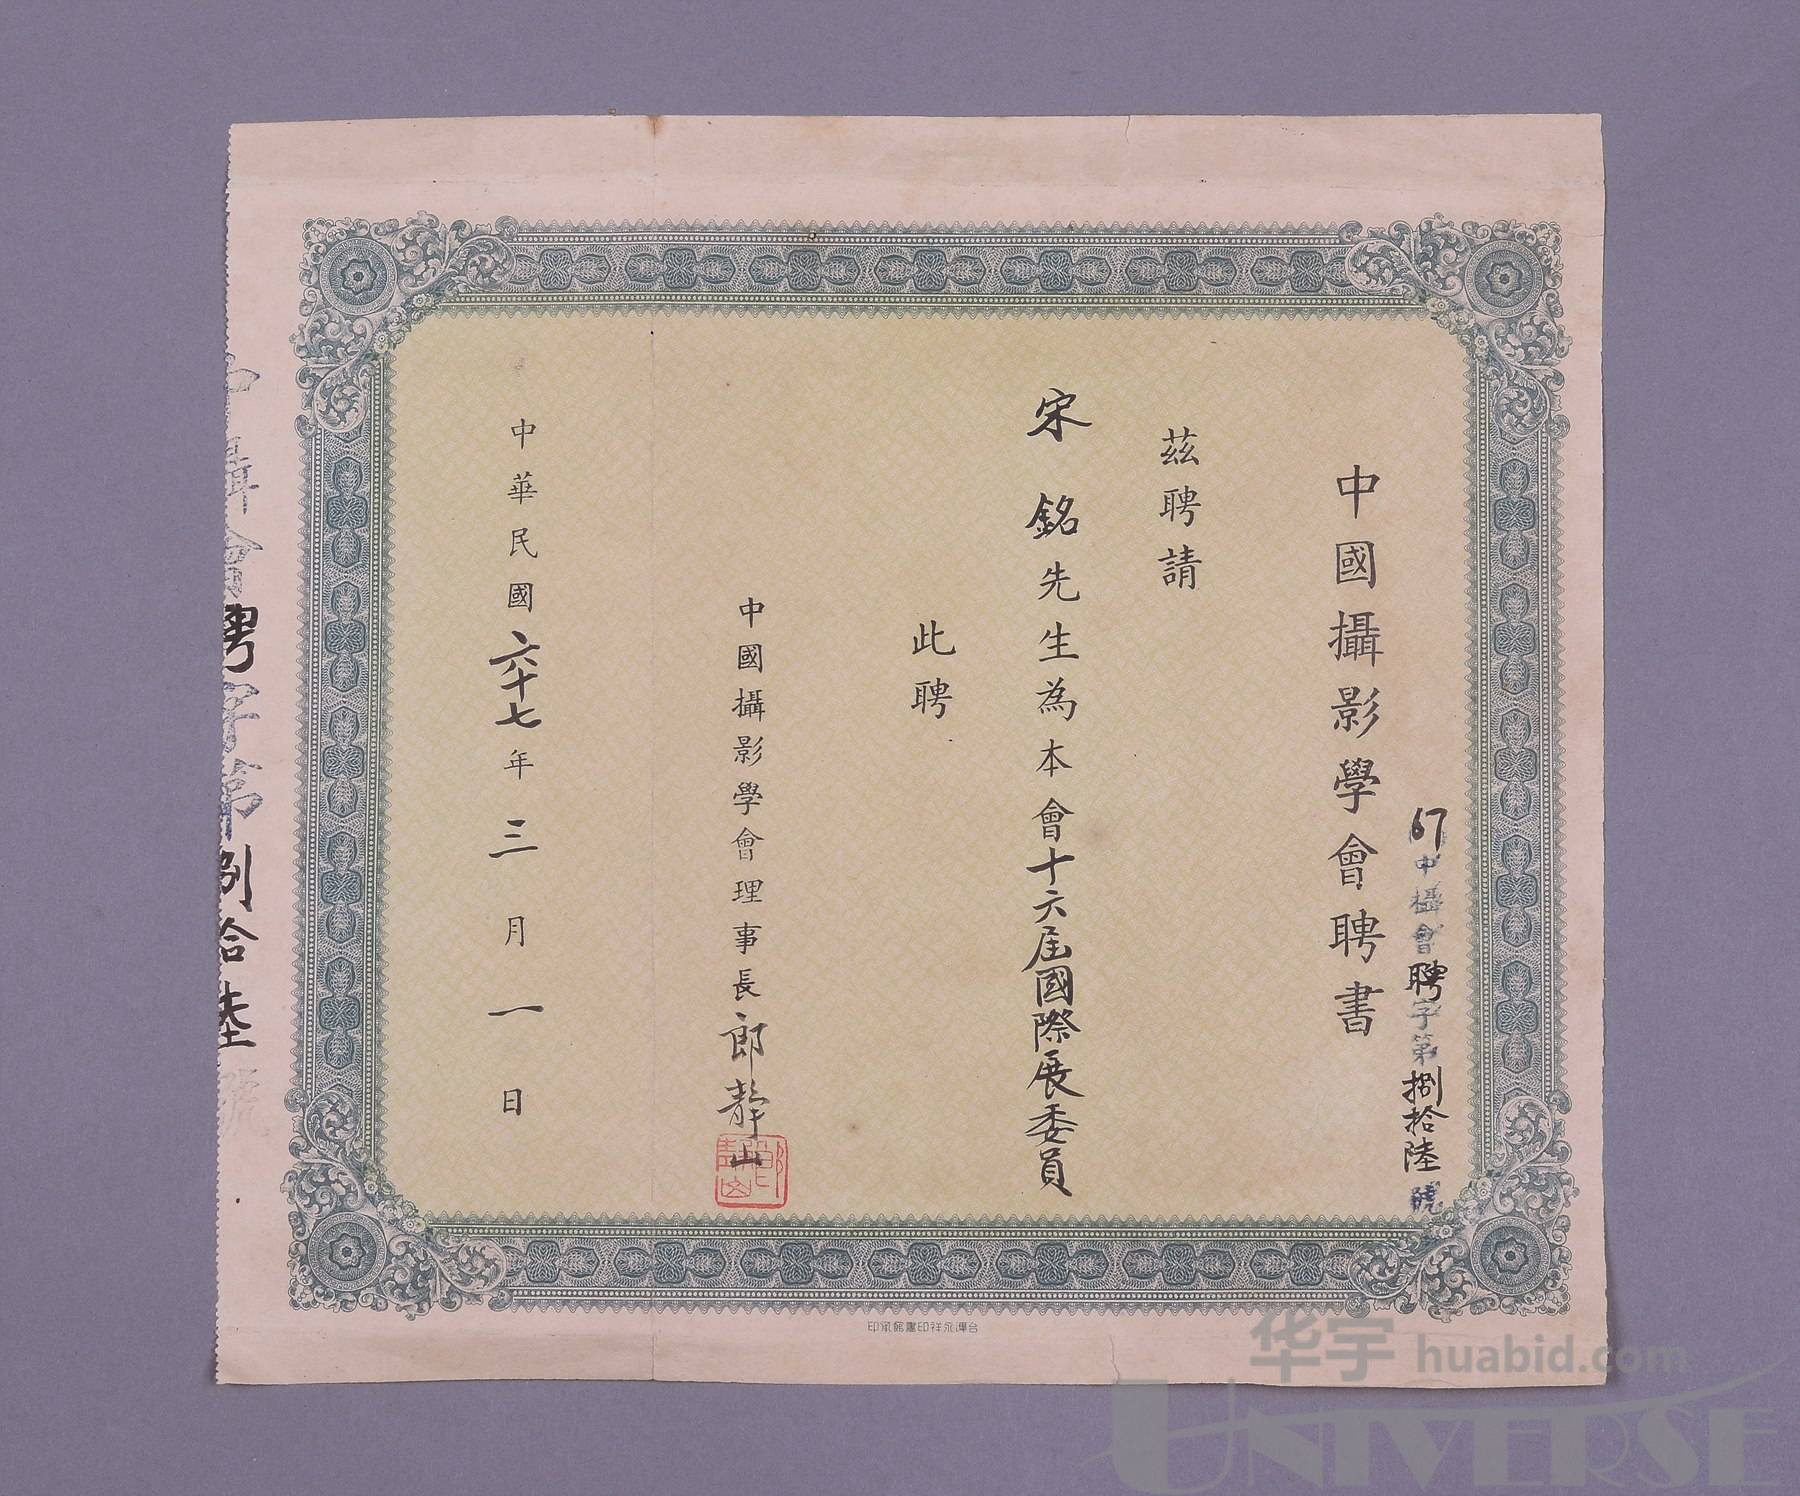 中國攝影學會聘書
67中攝會聘字第捌拾陸號
茲聘請
宋銘先生為本會十六屆國際展委員
此聘
中國攝影學會理事長郎靜山
中華民國六十七年三月一日
中攝會聘字第捌拾陸號
华宇 huabid.com
UNIVERSE